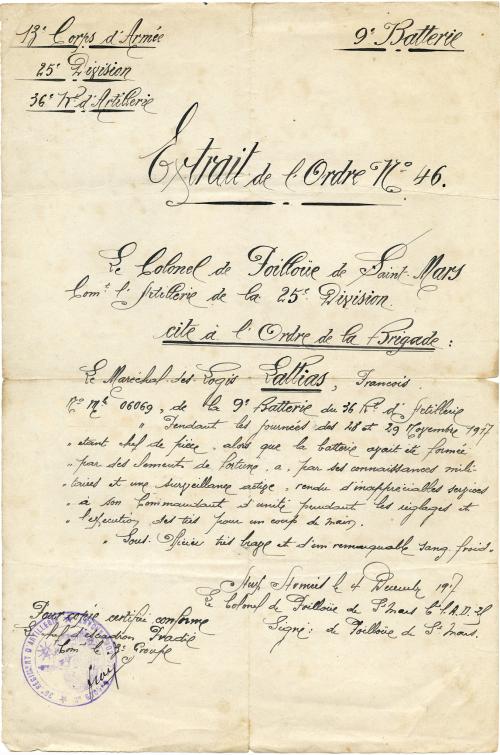 13e Corps d'Armée
25e Division
36e Rt d'Artillerie
9e Batterie
Extrait de l'Ordre No 46.
Le Colonel de Poilloüe de Saint-Mars
Comt l'Artillerie de la 25e Division
cite à l'Ordre de la Brigade :
Le Maréchal-des-Logis Lattias, François
No Mle 06069, de la 9e Batterie du 36 Rt d'Artillerie
" Pendant les journées des 28 et 29 Novembre 1917
" étant chef de pièce, alors que la batterie avait été formée
" par des éléments de fortune, a, par ses connaissances mili-
" taires et une surveillance active, rendu d'inappréciables services
" à son Commandant d'unité pendant les réglages et
" l'exécution des tirs pour un coup de main.
" Sous-Officier très brave et d'un remarquable sang froid "
le 4 Décembre 1917
Le Colonel de Poilloüe de St Mars Ct l'A.D. 25
Signé : de Poilloüe de St Mars.
Pour copie certifiée conforme
Le Chef d'Escadron Pradié
Comt le 3e Groupe
36e REGIMENT D'ARTILLERIE